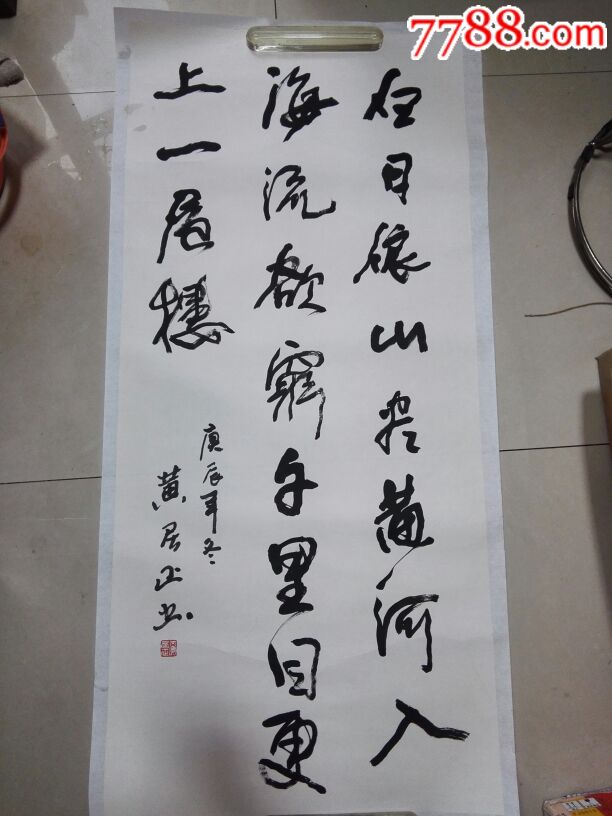 7788.com
白日依山尽黄河入
海流欲穷千里目更
上一层楼
庚辰年冬
黄居正书